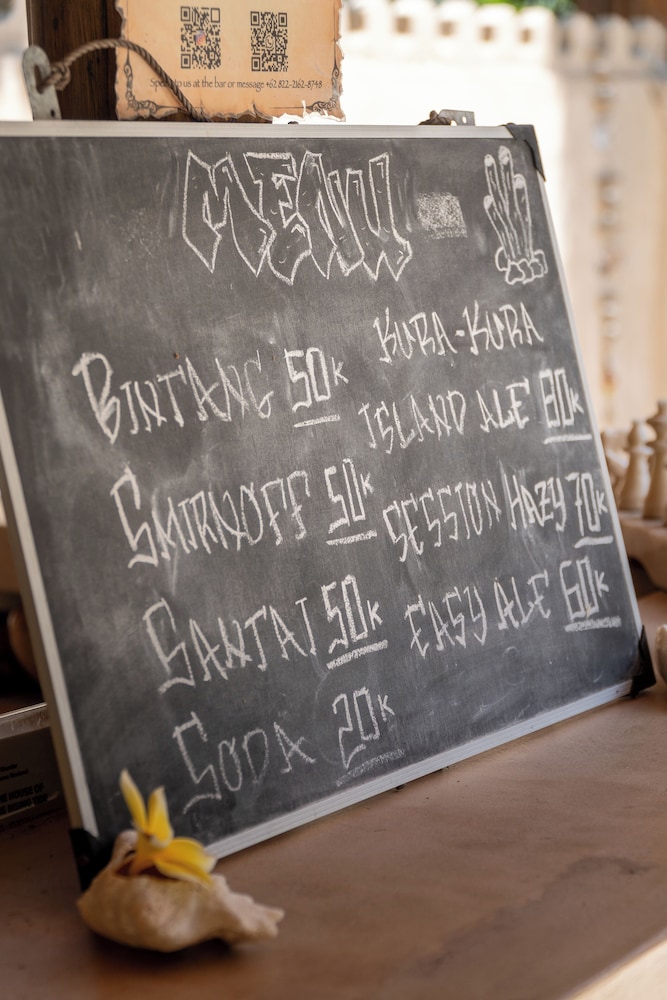 Speak to us at the bar or message +62 822-2162-8748
MENU
BINTANG 50K
SMIRNOFF 50K
SANTAI 50K
SODA 20K
KURA-KURA
ISLAND ALE 80K
SESSION HAZY 70K
EASY ALE 60K